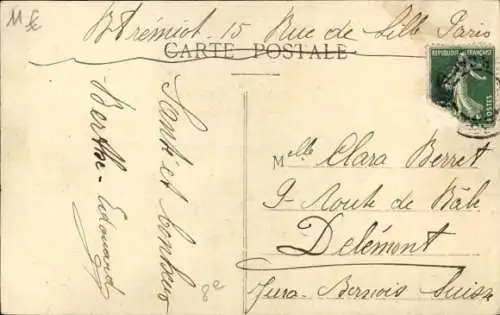 B Trémiot. 15 Rue de Lille Paris
CARTE POSTALE
REPUBLIQUE FRANÇAISE
POSTES
Santé et bonheur
Berthe - Edouard
Melle Clara Berret
9 - Route de Bâle
Delémont
Jura - Bernois Suisse